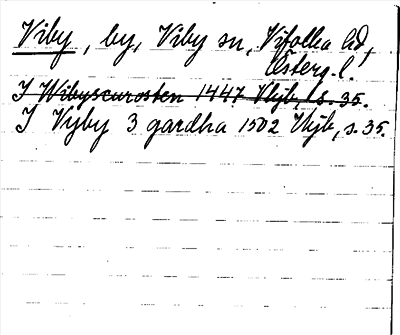 Viby, by, Viby sn, Vifolka hd,
Österg. l.
I Wibyscurosten 1447 Vhjb, s. 35.
I Vyby 3 gardha 1502 Vhjb, s. 35.